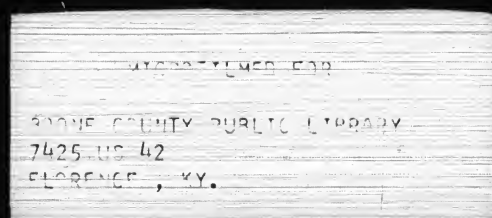 MICROFILMED FOR
BOONE COUNTY PUBLIC LIBRARY
7425 US 42
FLORENCE , KY.